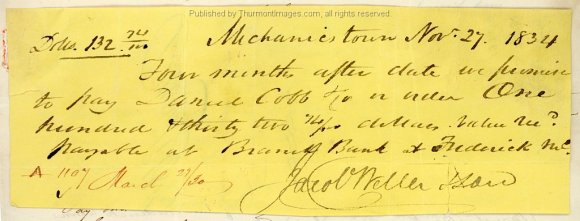 Published by Thurmontimages.com, all rights reserved
Dolls. 132 74/100 Mechanicstown Nov. 27. 1834
Four months after date we promise
to pay Daniel Cobb & Co or order One
hundred & thirty two 74/100 dollars. Value recd.
payable at Branch Bank at Frederick Md.
A 1107 March 27/30 Jacob Weller & Son